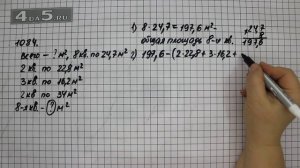 4da5.ru
1084.
Всего – ? м², 8 кв. по 24,7 м²
2 кв по 22,8 м²
3 кв по 16,2 м²
2 кв по 34 м²
8-я кв. – ? м²
1) 8·24,7 = 197,6 м²
общая площадь 8-и кв.
2) 197,6 – (2·22,8 + 3·16,2 +
×24,7
8
197,6